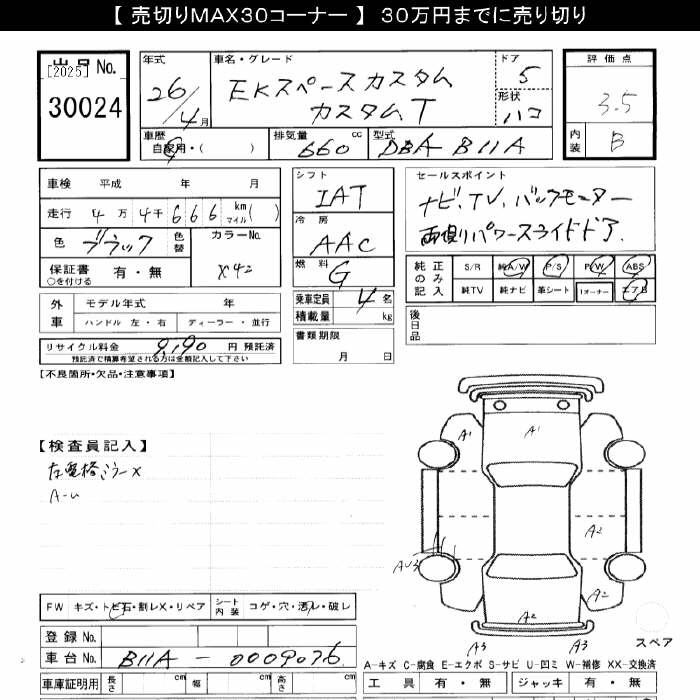 【 売切りMAX30コーナー 】 30万円までに売り切り
出品No.
[2025]
30024
年式
26/4月
車名・グレード
EKスペースカスタム
カスタムT
ドア
5
形状
ハコ
評価点
3.5
内装
B
車歴
自家用・( )
排気量
660 cc
型式
DBA B11A
車検 平成 年 月
走行 4万4千666 km マイル( )
色 ブラック
色替
カラーNo.
X42
保証書 有・無
○を付ける
シフト
IAT
冷房
AAC
燃料
G
乗車定員 4名
積載量 kg
書類期限
月 日
セールスポイント
ナビ、TV、バックモニター
両側パワースライドドア.
純正のみ記入
S/R 純A/W P/S P/W ABS
純TV 純ナビ 革シート 1オーナー エアB
後日品
外車
モデル年式 年
ハンドル 左・右 ディーラー・並行
リサイクル料金 9,190 円 預託済
預託済で積算希望される方は金額記入して下さい
【不良箇所・欠品・注意事項】
【検査員記入】
左電格ミラーX
A-U
A1
A1
A2
AU3
A2
A2
A3
A3
スペア
FW キズ・トビ石・割レX・リペア
シート内装
コゲ・穴・汚レ・破レ
登録No.
車台No. B11A-0009076
A-キズ C-腐食 E-エクボ S-サビ U-凹ミ W-補修 XX-交換済
車庫証明用 長さ cm 幅 cm 高さ cm
工具 有・無 ジャッキ 有・無